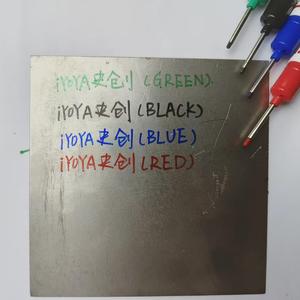 iYOYA央创(GREEN).
iYOYA央创(BLACK)
iYOYA央创(BLUE)
iYOYA央创(RED)